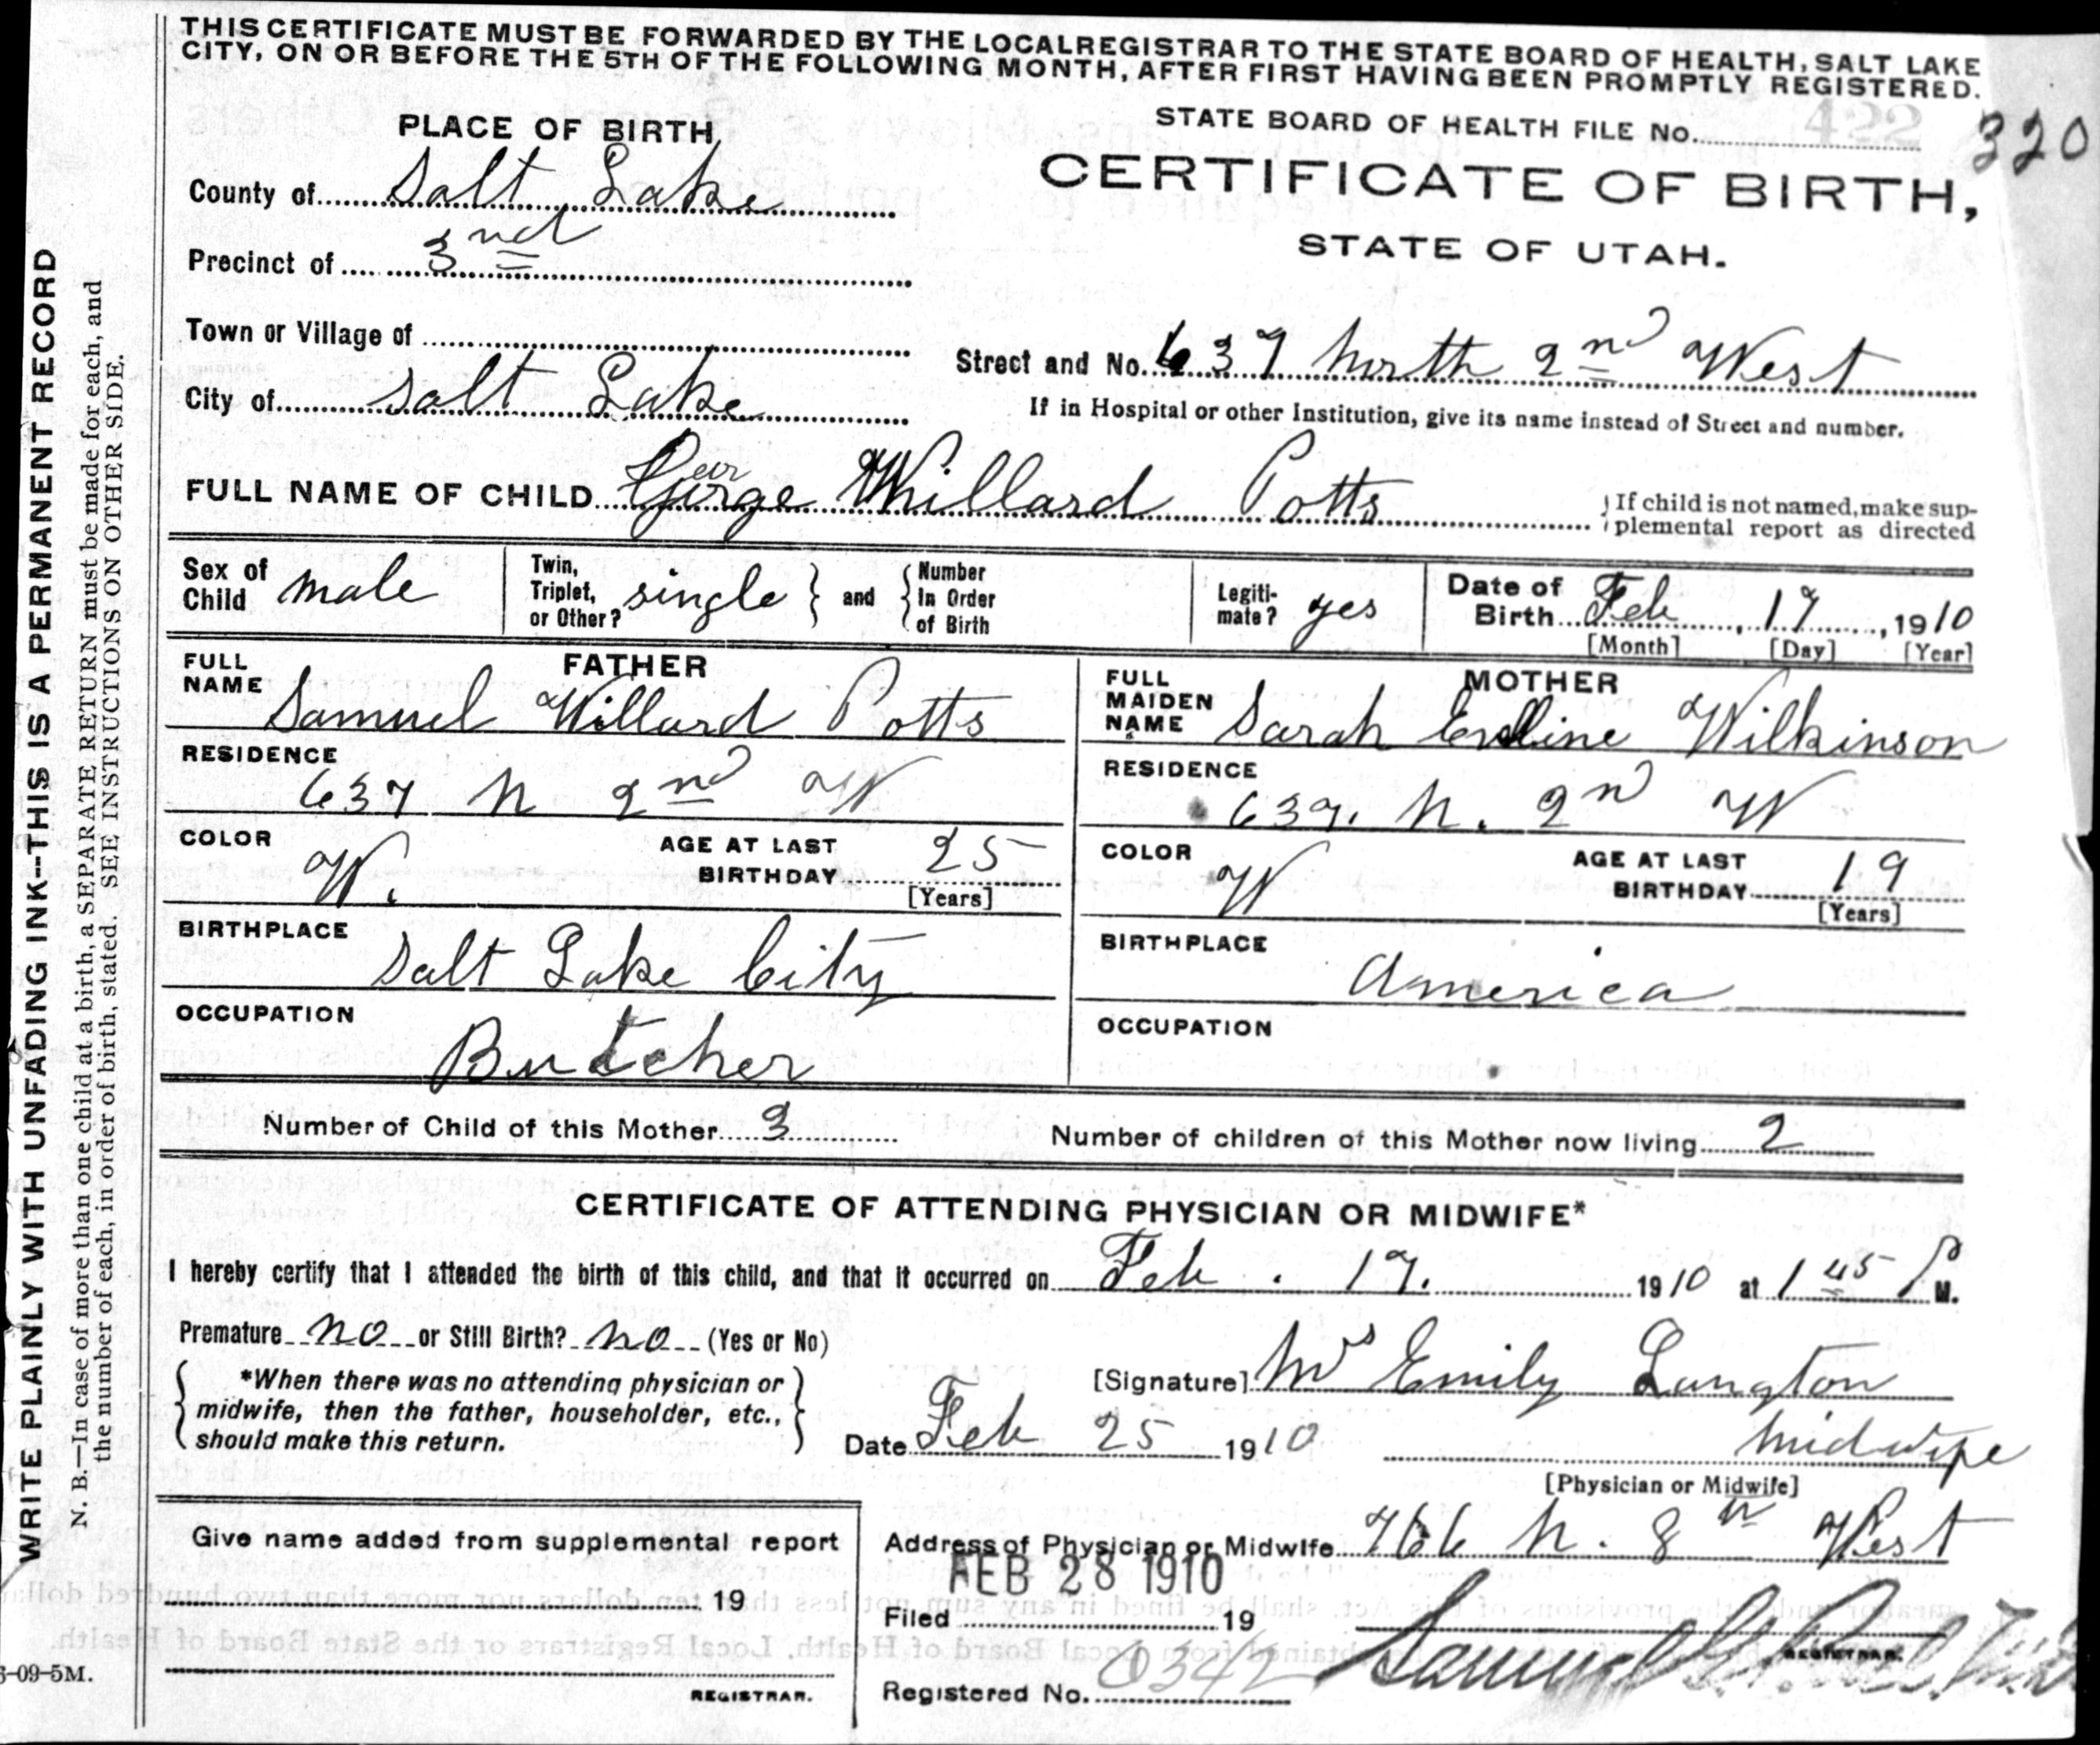 THIS CERTIFICATE MUST BE FORWARDED BY THE LOCAL REGISTRAR TO THE STATE BOARD OF HEALTH, SALT LAKE
CITY, ON OR BEFORE THE 5TH OF THE FOLLOWING MONTH, AFTER FIRST HAVING BEEN PROMPTLY REGISTERED.
STATE BOARD OF HEALTH FILE No. 422 320
PLACE OF BIRTH
CERTIFICATE OF BIRTH,
STATE OF UTAH.
County of Salt Lake
Precinct of 3nd
Town or Village of
Street and No. 637 North 2nd West
City of Salt Lake
If in Hospital or other Institution, give its name instead of Street and number.
FULL NAME OF CHILD George Willard Potts
If child is not named, make sup-
plemental report as directed
Sex of Child male
Twin, Triplet, or Other? single and Number In Order of Birth
Legiti-mate? yes
Date of Birth Feb, 17, 1910
[Month] [Day] [Year]
FATHER
FULL NAME Samuel Willard Potts
RESIDENCE
637 N 2nd W
COLOR W.
AGE AT LAST BIRTHDAY 25
[Years]
BIRTHPLACE
Salt Lake City
OCCUPATION
Butcher
MOTHER
FULL MAIDEN NAME Sarah Wilkinson
RESIDENCE
637. N. 2nd W
COLOR W
AGE AT LAST BIRTHDAY 19
[Years]
BIRTHPLACE
America
OCCUPATION
Number of Child of this Mother 3
Number of children of this Mother now living 2
CERTIFICATE OF ATTENDING PHYSICIAN OR MIDWIFE*
I hereby certify that I attended the birth of this child, and that it occurred on Feb. 17. 1910 at 1 45 P M.
Premature no or Still Birth? no (Yes or No)
*When there was no attending physician or
midwife, then the father, householder, etc.,
should make this return.
[Signature] Mrs Emily Langton
Date Feb 25 1910
Midwife
[Physician or Midwife]
Give name added from supplemental report
19
REGISTRAR.
Address of Physician or Midwife 766 N. 8th West
FEB 28 1910
Filed 19
REGISTRAR.
Registered No. 0342
3-09-5M.
WRITE PLAINLY WITH UNFADING INK--THIS IS A PERMANENT RECORD
N. B.—In case of more than one child at a birth, a SEPARATE RETURN must be made for each, and
the number of each, in order of birth, stated. SEE INSTRUCTIONS ON OTHER SIDE.